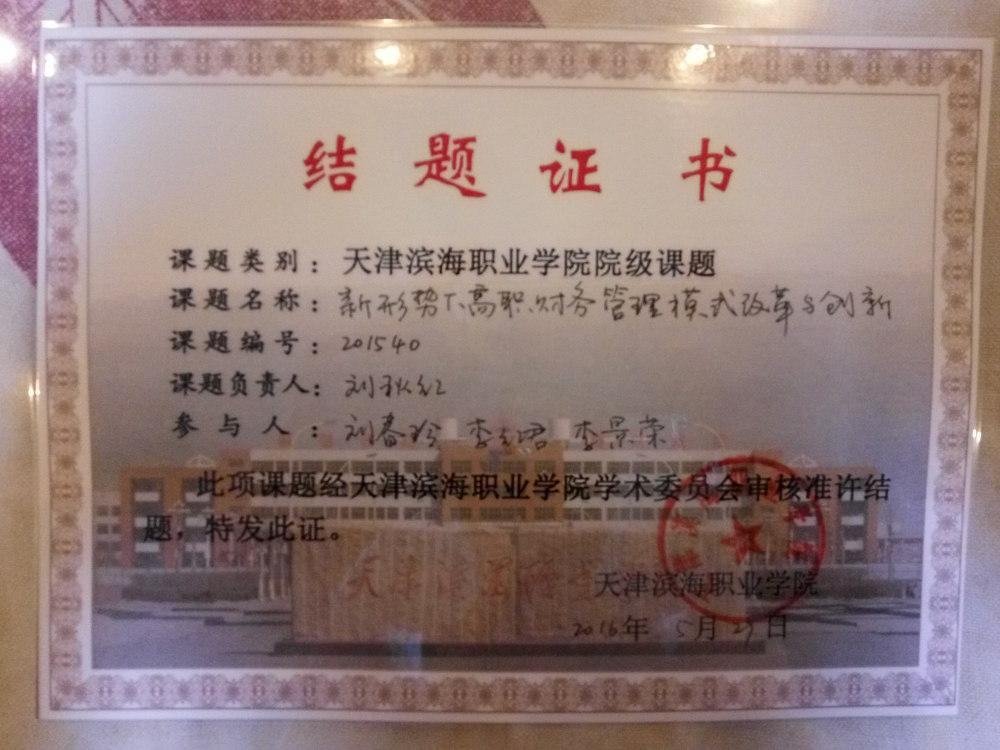 结题证书
课题类别：天津滨海职业学院院级课题
课题名称：新形势下高职财务管理模式改革与创新
课题编号：201540
课题负责人：刘秋红
参与人：刘春玲 李 君 李景荣
此项课题经天津滨海职业学院学术委员会审核准许结
题，特发此证。
天津滨海
天津滨海职业学院
2016年 5月 27日